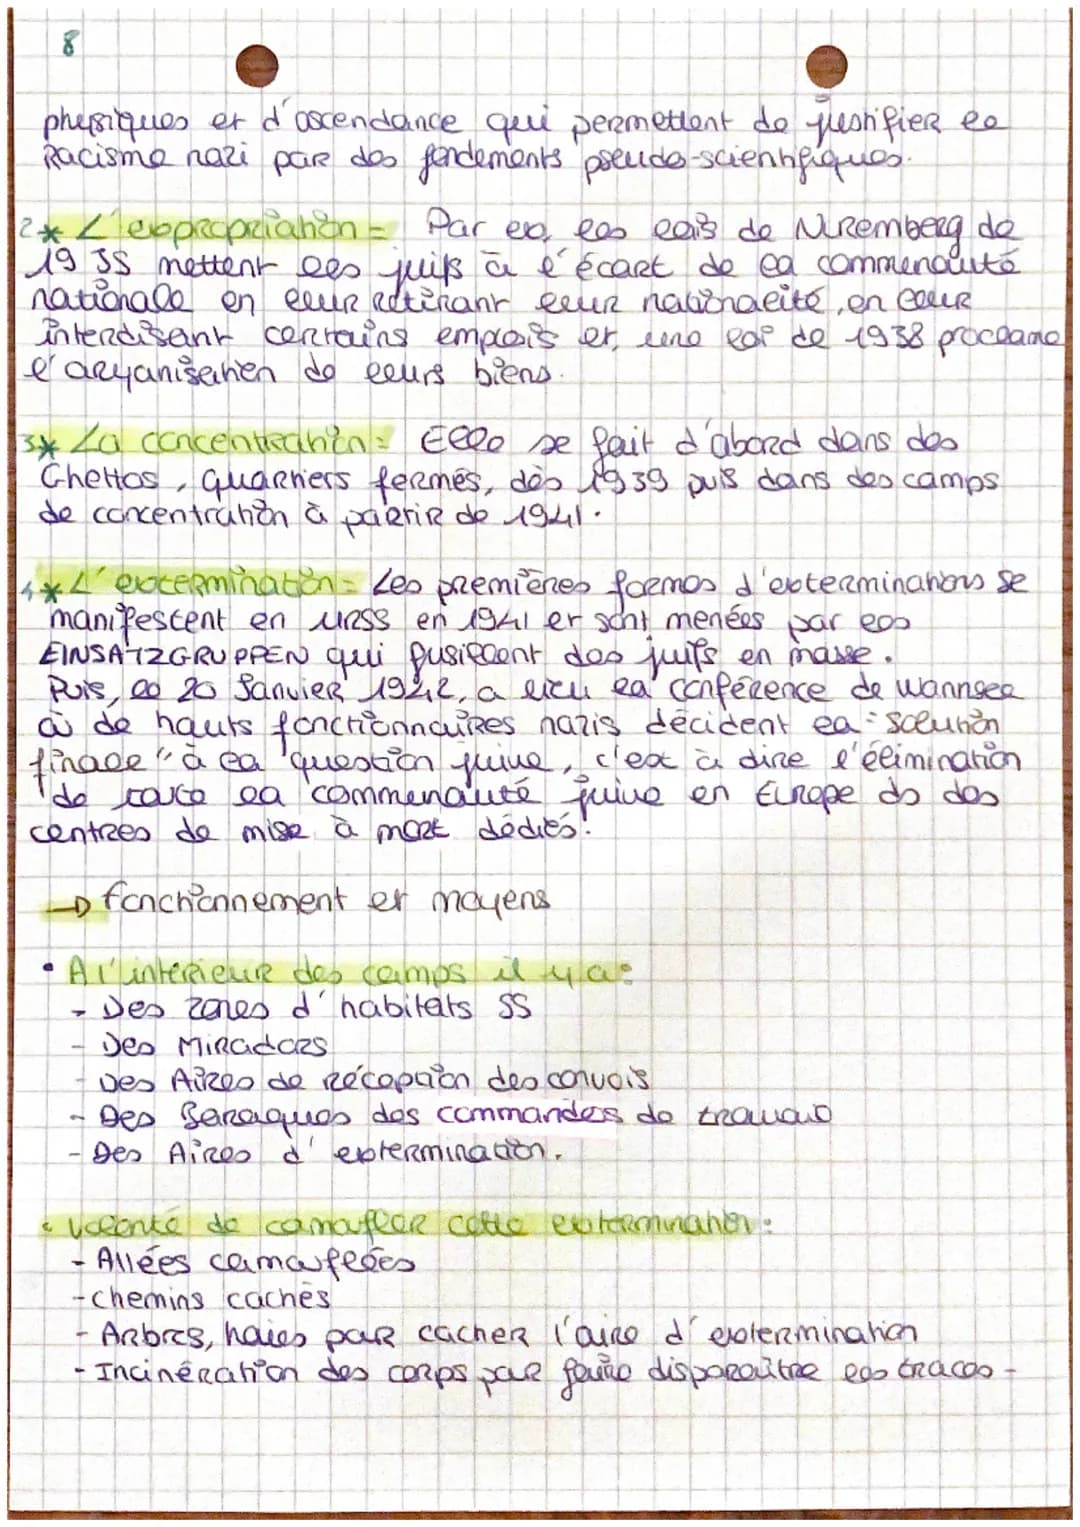 8
physiques et d'ascendance qui permettent de justifier le
Racisme nazi par des fondements pseudo-scientifiques.
2* L'expropriation = Par ex, les lois de Nuremberg de
1935 mettent les juifs à l'écart de la communauté
nationale en leur retirant leur nationalité, en leur
interdisant certains emplois et, une loi de 1938 proclame
l'aryanisation de leurs biens.
3* La concentration = Elle se fait d'abord dans des
Ghettos, Quartiers fermés, dès 1939 puis dans des camps
de concentration à partir de 1941.
4* L'extermination = Les premières formes d'exterminations se
manifestent en URSS en 1941 et sont menées par les
EINSATZGRUPPEN qui fusillent des juifs en masse.
Puis, le 20 Janvier 1942, a lieu la conférence de Wannsee
où de hauts fonctionnaires nazis décident la "solution
finale" à la question juive, c'est à dire l'élimination
de toute la communauté juive en Europe ds des
centres de mise à mort dédiés.
→ fonctionnement et moyens
• A l'intérieur des camps il y a :
- Des zones d'habitats SS
- Des Miradors
- Des Aires de récéption des convois
- Des Baraques des commandos de travaux
- Des Aires d'extermination.
• Volonté de camoufler cette extermination :
- Allées camouflées
- chemins cachés
- Arbres, haies pour cacher l'aire d'extermination
- Incinération des corps pour faire disparaître les traces -